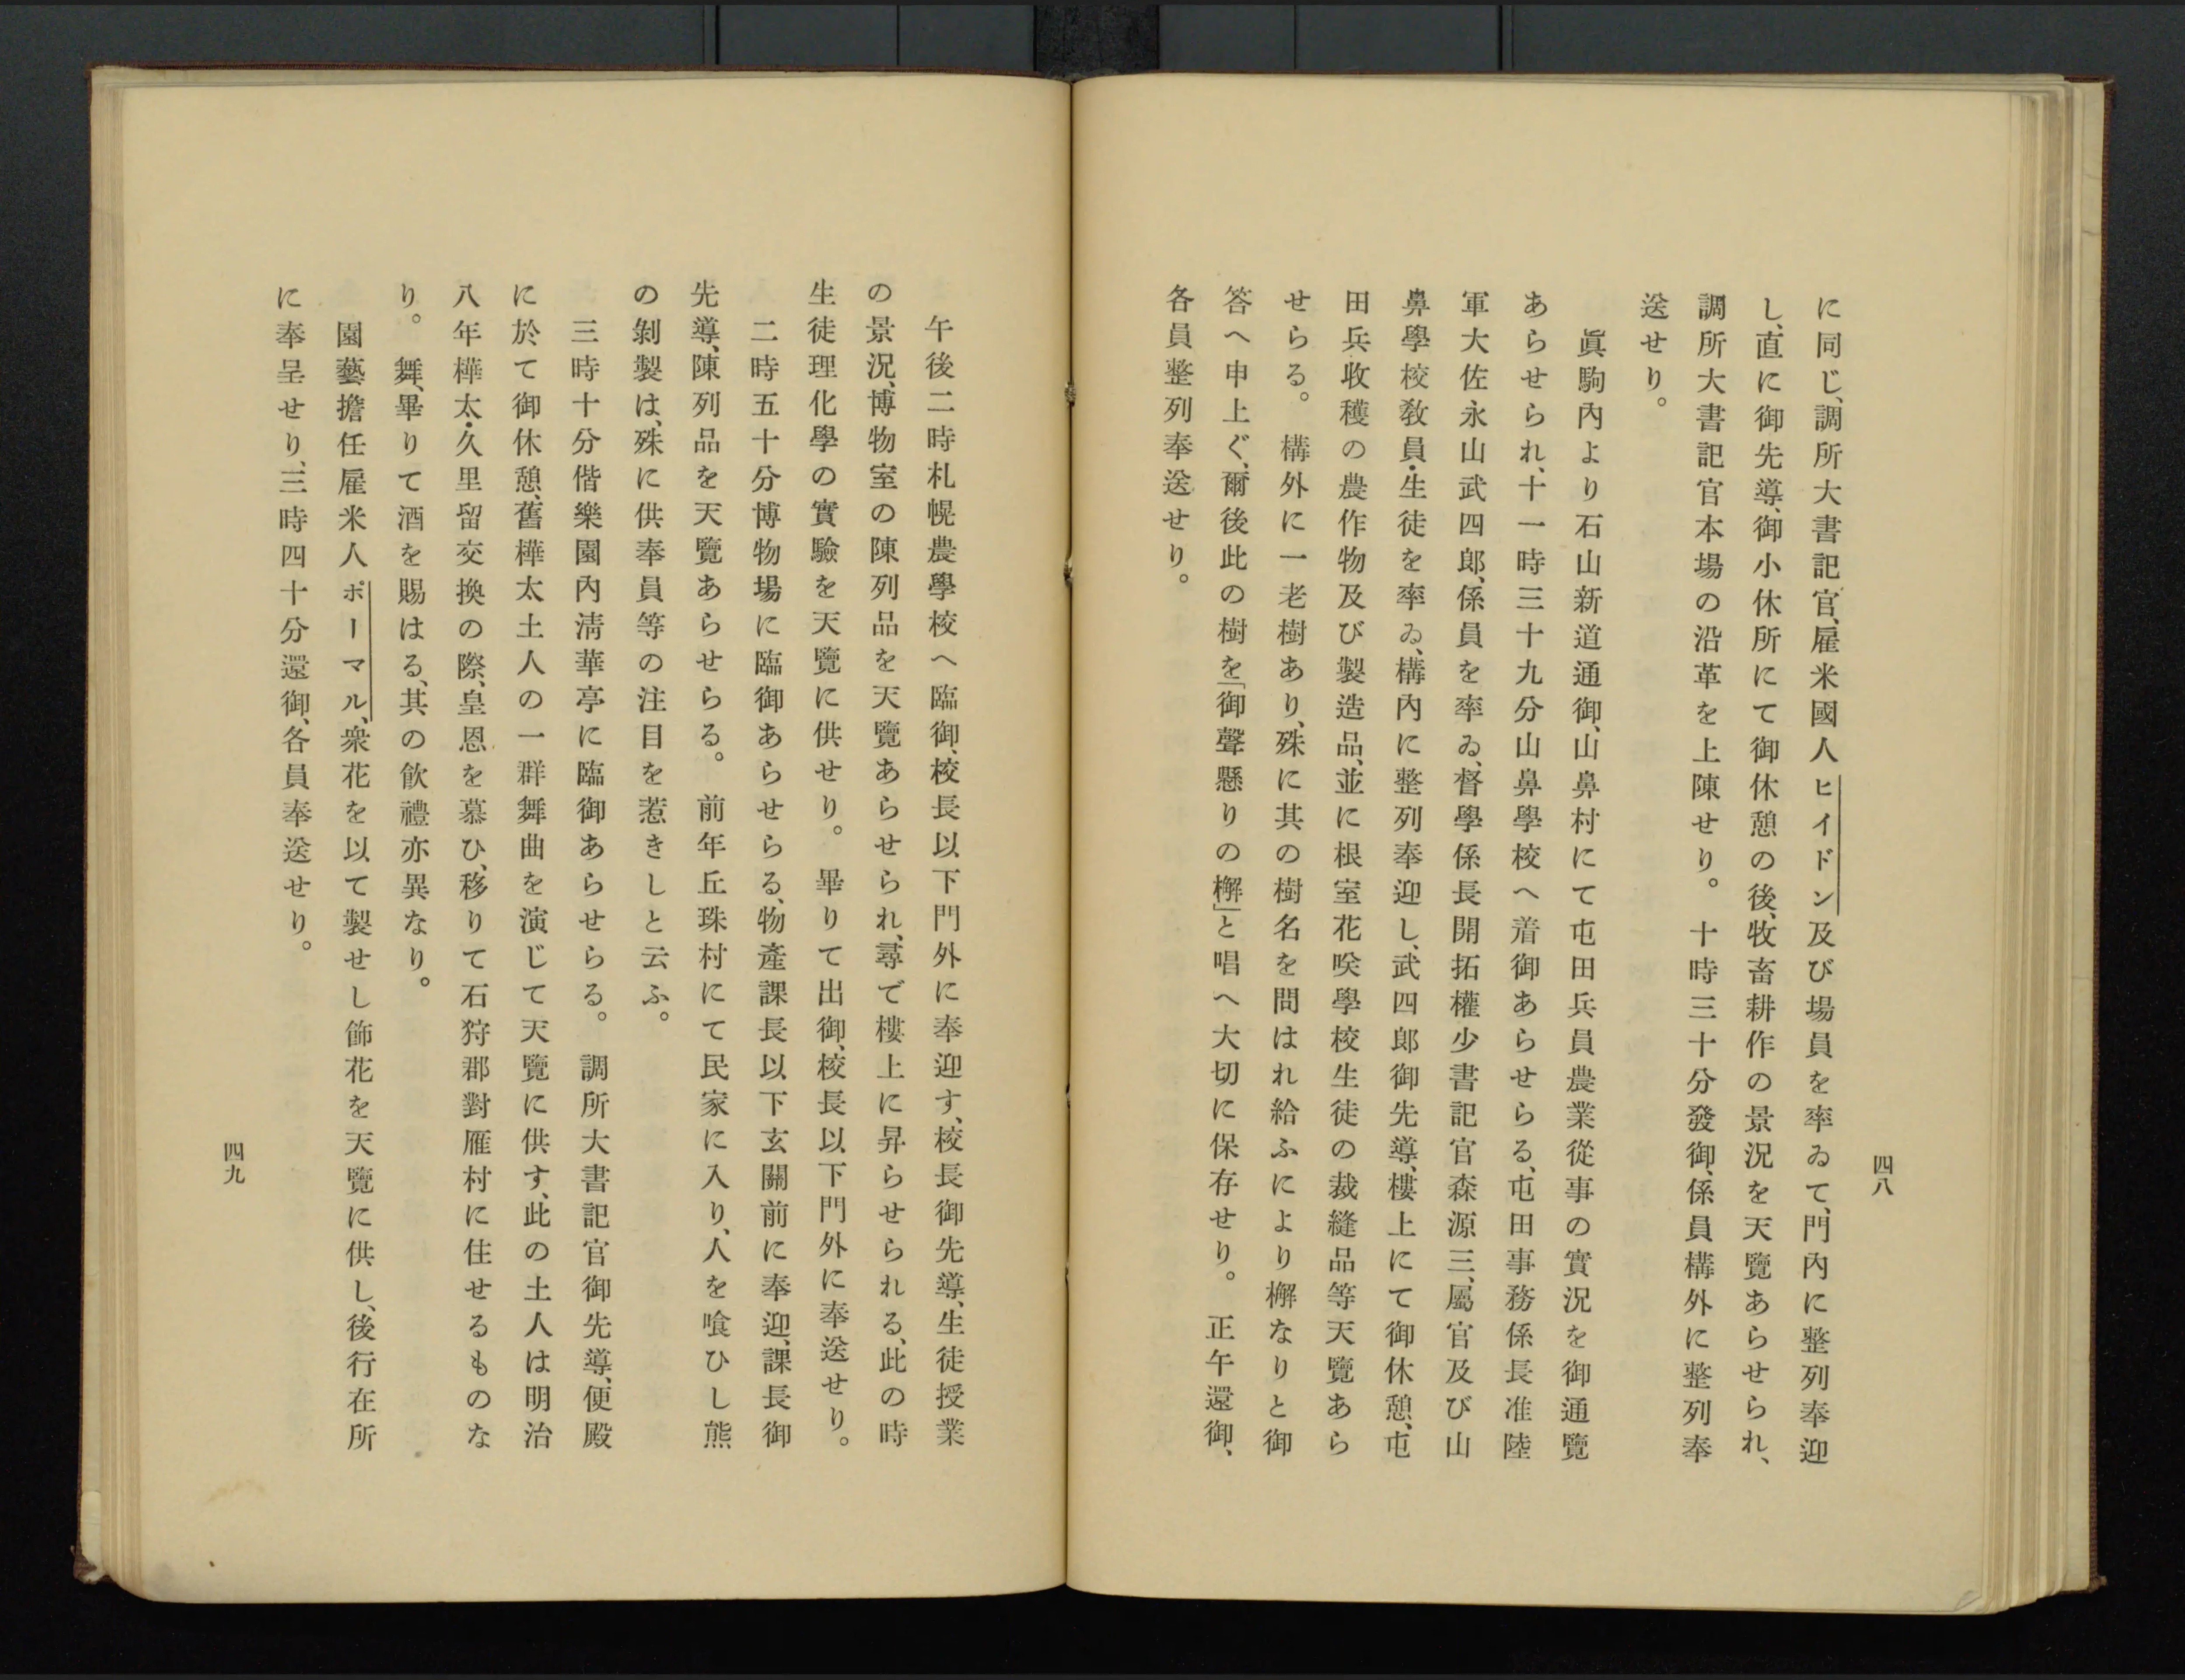 四八
に同じ、調所大書記官、雇米國人ヒイドン及び場員を率ゐて、門內に整列奉迎
し、直に御先導、御小休所にて御休憩の後、牧畜耕作の景況を天覽あらせられ、
調所大書記官本場の沿革を上陳せり。十時三十分發御、係員構外に整列奉
送せり。
眞駒內より石山新道通御、山鼻村にて屯田兵員農業從事の實況を御通覽
あらせられ、十一時三十九分山鼻學校へ着御あらせらる、屯田事務係長准陸
軍大佐永山武四郎、係員を率ゐ、督學係長開拓權少書記官森源三、屬官及び山
鼻學校敎員・生徒を率ゐ、構內に整列奉迎し、武四郎御先導、樓上にて御休憩、屯
田兵收穫の農作物及び製造品、並に根室花咲學校生徒の裁縫品等天覽あら
せらる。構外に一老樹あり、殊に其の樹名を問はれ給ふにより檞なりと御
答へ申上ぐ、爾後此の樹を「御聲懸りの檞」と唱へ大切に保存せり。正午還御、
各員整列奉送せり。
午後二時札幌農學校へ臨御、校長以下門外に奉迎す、校長御先導、生徒授業
の景況、博物室の陳列品を天覽あらせられ、尋で樓上に昇らせられる、此の時
生徒理化學の實驗を天覽に供せり。畢りて出御、校長以下門外に奉送せり。
二時五十分博物場に臨御あらせらる、物產課長以下玄關前に奉迎、課長御
先導、陳列品を天覽あらせらる。前年丘珠村にて民家に入り、人を喰ひし熊
の剝製は、殊に供奉員等の注目を惹きしと云ふ。
三時十分偕樂園內淸華亭に臨御あらせらる。調所大書記官御先導、便殿
に於て御休憩、舊樺太土人の一群舞曲を演じて天覽に供す、此の土人は明治
八年樺太・久里留交換の際、皇恩を慕ひ、移りて石狩郡對雁村に住せるものな
り。舞、畢りて酒を賜はる、其の飮禮亦異なり。
園藝擔任雇米人ボーマル、衆花を以て製せし飾花を天覽に供し、後行在所
に奉呈せり、三時四十分還御、各員奉送せり。
四九